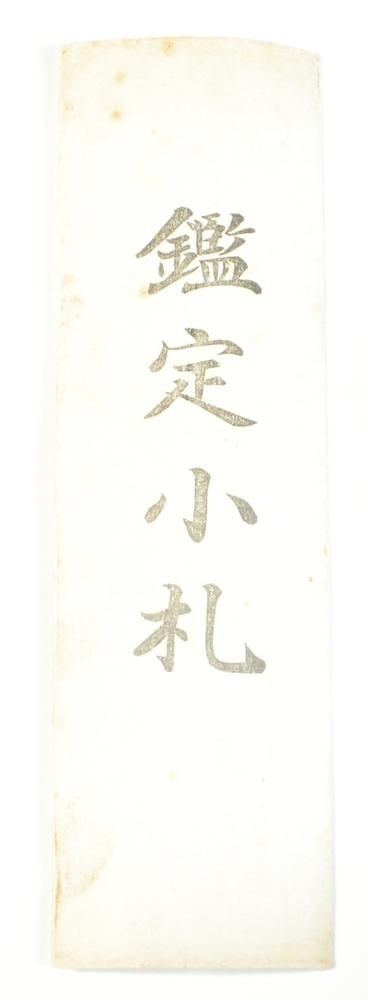 鑑定小札